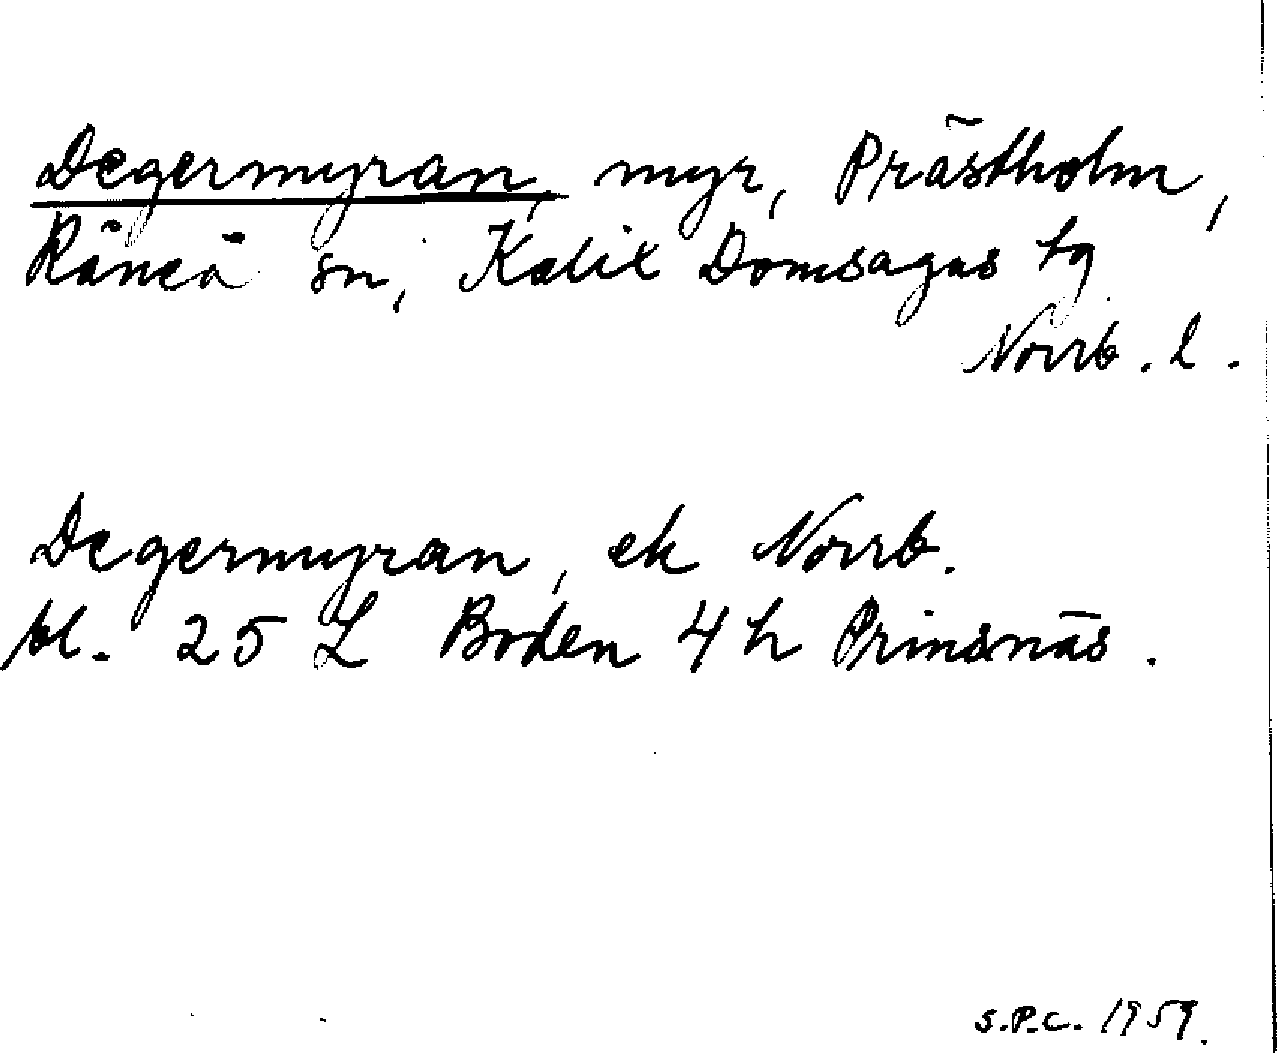 Degermyran, myr, Prästholm,
Råneå sn, Kalix Domsagas tg
Norrb. l.
Degermyran, ek Norrb.
bl. 25 L Boden 4 h Prinsnäs.
S.P.C. 1959.